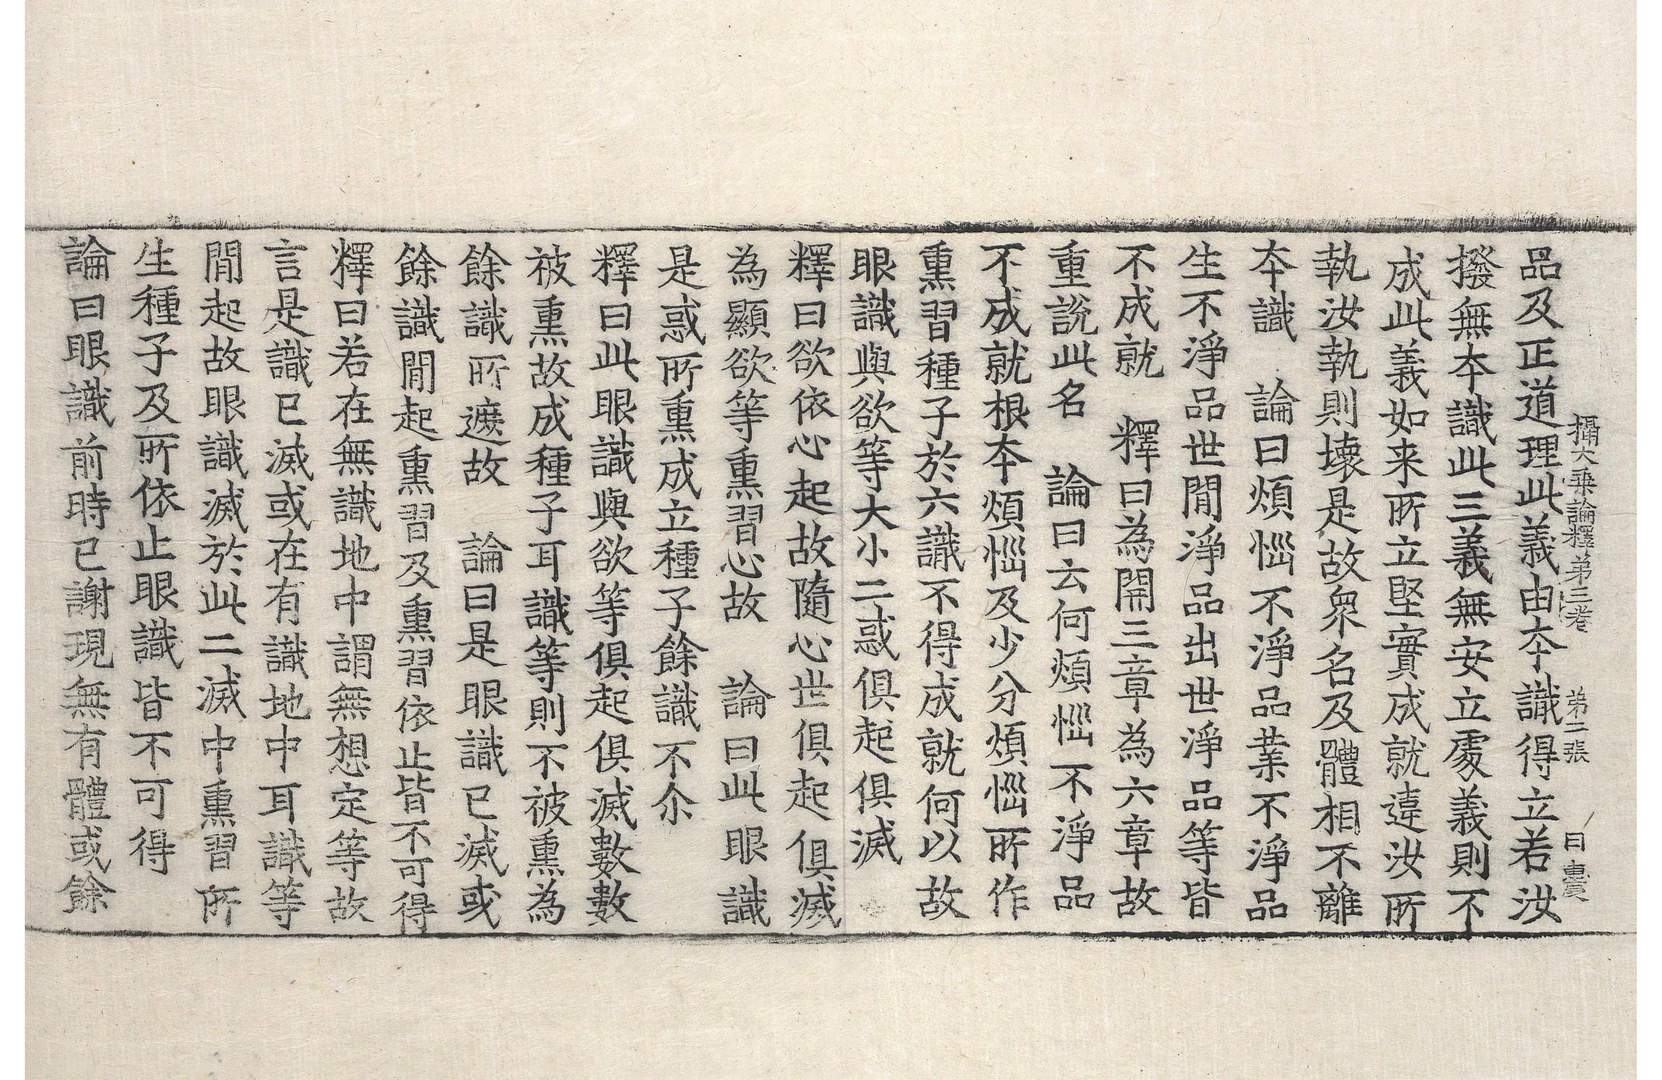 攝大乘論釋第三卷 第二張 曰 慶
品及正道理此義由夲識得立若汝
撥無夲識此三義無安立處義則不
成此義如来所立堅實成就違汝所
執汝執則壞是故衆名及體相不離
夲識 論曰煩惱不淨品業不淨品
生不淨品世閒淨品出世淨品等皆
不成就 釋曰為開三章為六章故
重說此名 論曰云何煩惱不淨品
不成就根夲煩惱及少分煩惱所作
熏習種子於六識不得成就何以故
眼識與欲等大小二惑俱起俱滅
釋曰欲依心起故隨心世俱起俱滅
為顯欲等熏習心故 論曰此眼識
是惑所熏成立種子餘識不尒
釋曰此眼識與欲等俱起俱滅數數
被熏故成種子耳識等則不被熏為
餘識所遮故 論曰是眼識已滅或
餘識閒起熏習及熏習依止皆不可得
釋曰若在無識地中謂無想定等故
言是識已滅或在有識地中耳識等
閒起故眼識滅於此二滅中熏習所
生種子及所依止眼識皆不可得
論曰眼識前時已謝現無有體或餘